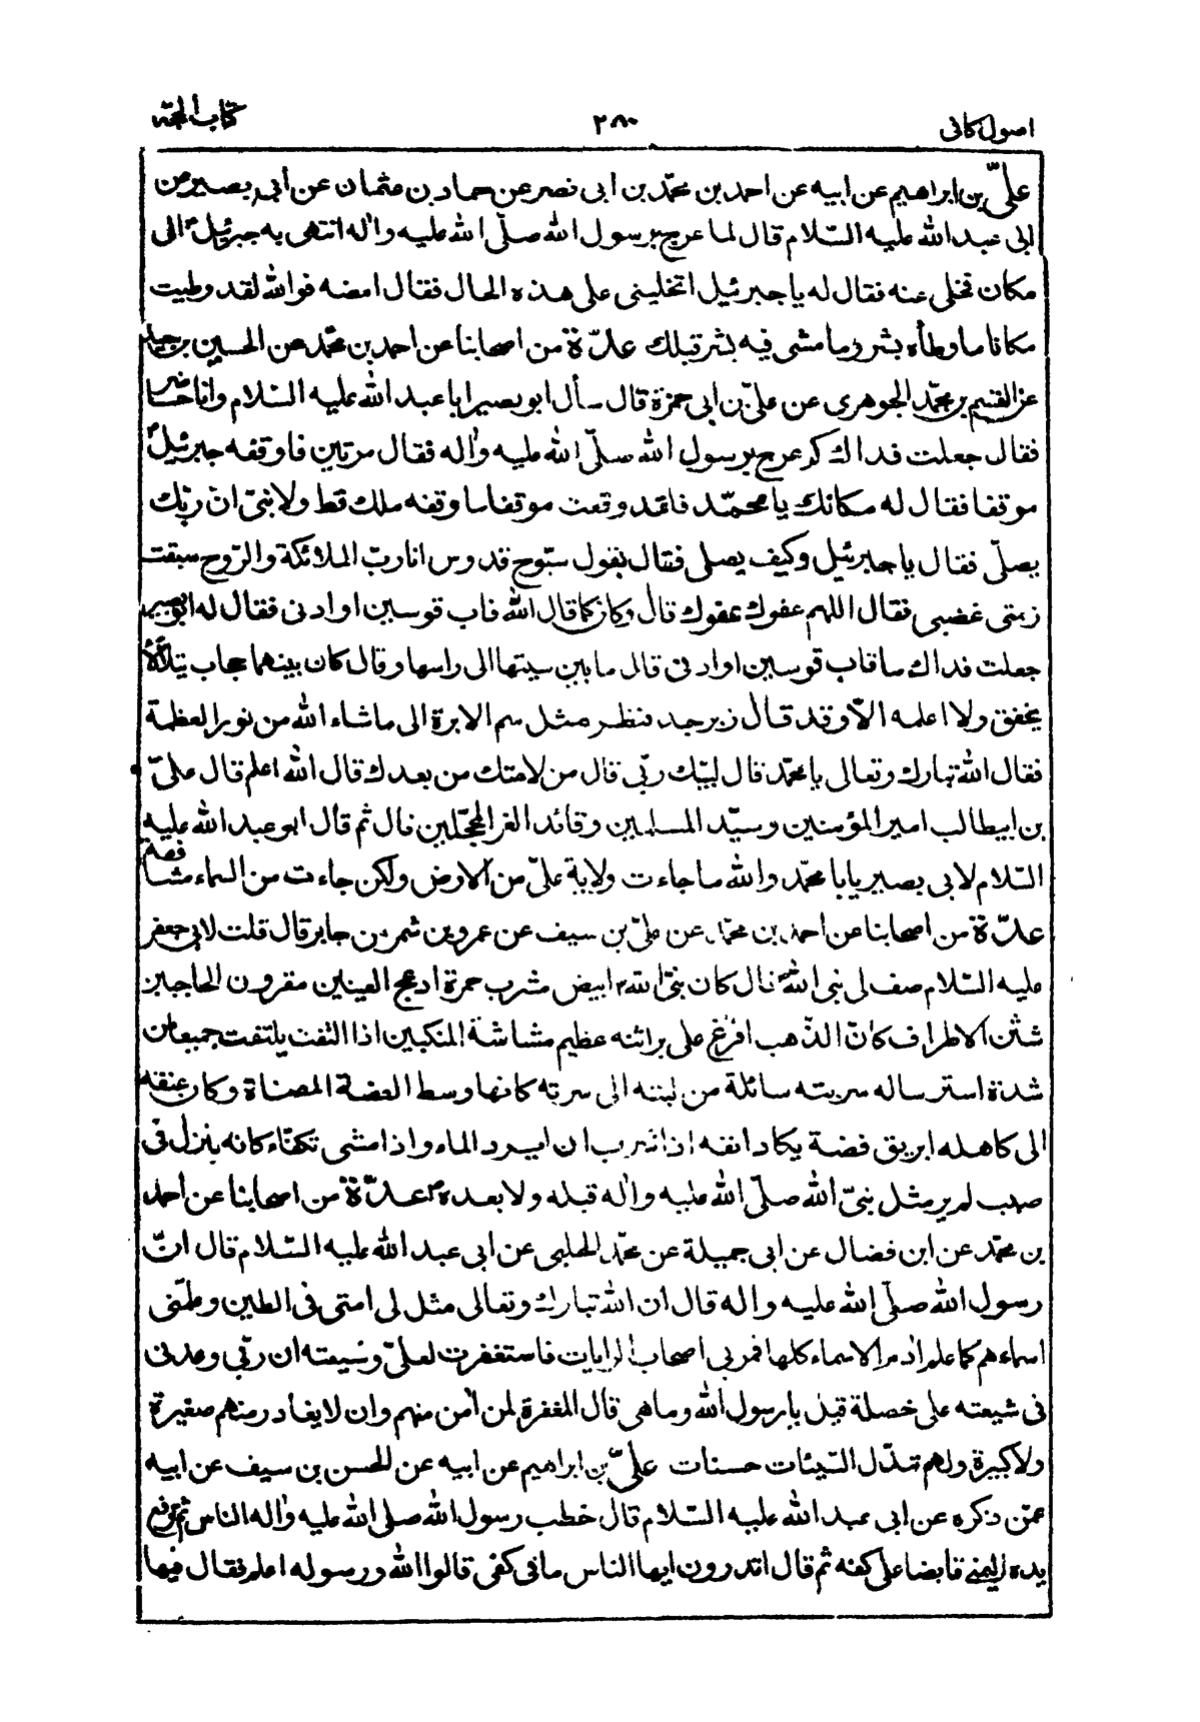 اصول كافى ٢٨٠ كتاب الحجة
علىّ بن ابراهيم عن ابيه عن احمد بن محمّد بن ابى نصر عن حماد بن عثمان عن أبى بصير عن
ابى عبد الله عليه السّلام قال لما عرج برسول الله صلّى الله عليه واٰله انتهى به جبرئيلؑ الى
مكان فخلى عنه فقال له يا جبرئيل اتخلينى على هذه الحال فقال امضه فوالله لقد وطيت
مكانا ما وطأه بشر وما مشى فيه بشر قبلك عدّة من اصحابنا عن احمد بن محمّد عن الحسين بن سعيد
عن القسم بن محمّد الجوهرى عن علىّ بن ابى حمزة قال سأل ابو بصير ابا عبد الله عليه السّلام وانا حاضر
فقال جعلت فداك كم عرج برسول الله صلّى الله عليه واٰله فقال مرتين فاوقفه جبرئيلؑ
موقفا فقال له مكانك يا محمّد فلقد وقفت موقفا ما وقفه ملك قط ولا نبىّ انّ ربّك
يصلّى فقال يا جبرئيل وكيف يصلى فقال يقول سبّوح قدوس انا ربّ الملائكة والرّوح سبقت
رحمتى غضبى فقال اللهم عفوك عفوك قال وكان كما قال الله قاب قوسين او ادنى فقال له ابو بصير
جعلت فداك ما قاب قوسين او ادنى قال ما بين سيتها الى راسها وقال كان بينهما حجاب يتلألأ
يخفق ولا اعلمه الّا وقد قال زبرجد فنظر مثل سم الابرة الى ما شاء الله من نور العظمة
فقال الله تبارك وتعالى يا محمّد قال لبيّك ربّى قال من لامتك من بعدك قال الله اعلم قال علىّ
بن ابيطالب امير المؤمنين وسيّد المسلمين وقائد الغر المحجّلين قال ثم قال ابو عبد الله عليه
السّلام لابى بصير يا با محمّد والله ما جاءت ولاية علىّ من الارض ولكن جاءت من السماء مشافهة
عدّة من اصحابنا عن احمد بن محمّد عن علىّ بن سيف عن عمرو بن شمر عن جابر قال قلت لابى جعفر
عليه السّلام صف لى نبى الله قال كان نبىّ الله ابيض مشرب حمرة ادعج العينين مقرون الحاجبين
شثن الاطراف كانّ الذّهب افرغ على براثنه عظيم مشاشة المنكبين اذا التفت يلتفت جميعا من
شدة استرساله سربته سائلة من لبته الى سرته كانها وسط الفضة المصفاة وكان عنقه
الى كاهله ابريق فضة يكاد انفه اذا شرب ان يرد الماء واذا مشى تكفّاء كانه ينزل فى
صبب لم ير مثل نبىّ الله صلّى الله عليه واٰله قبله ولا بعده عدّة من اصحابنا عن احمد
بن محمّد عن ابن فضال عن ابى جميلة عن محمّد الحلبى عن ابى عبد الله عليه السّلام قال انّ
رسول الله صلّى الله عليه واٰله قال ان الله تبارك وتعالى مثل لى امتى فى الطين وعلمنى
اسماءهم كما علم اٰدم الاسماء كلها فمر بى اصحاب الرايات فاستغفرت لعلىّ وشيعته ان ربّى وعدنى
فى شيعته على خصلة قيل يا رسول الله وما هى قال المغفرة لمن اٰمن منهم وان لا يغادر منهم صغيرة
ولا كبيرة ولهم تبدّل السّيئات حسنات علىّ بن ابراهيم عن ابيه عن الحسن بن سيف عن ابيه
عمّن ذكره عن ابى عبد الله عليه السّلام قال خطب رسول الله صلى الله عليه واٰله الناس ثم رفع
يده اليمنى قابضا على كفه ثم قال اتدرون ايها الناس ما فى كفى قالوا الله ورسوله اعلم فقال فيها